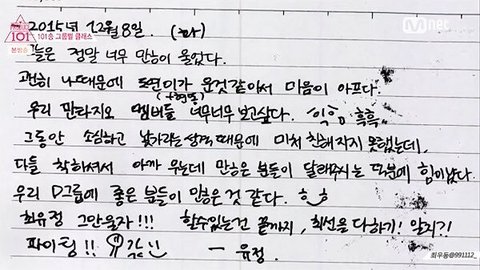 101
101송 그룹별 클래스
본방송
Mnet
2015년 12월 8일. (화)
오늘은 정말 너무 많이 울었다.
괜히 나때문에 도연이가 운것같아서 마음이 아프다.
(+청하)
우리 판타지오 멤버들 너무너무 보고싶다. 흑흑
그동안 소심하고 낯가리는 성격때문에 미처 친해지지 못했는데,
다들 착하셔서 아까 우는데 많은 분들이 달래주시는 덕분에 힘이났다.
우리 D그룹에 좋은 분들이 많은것 같다.
최유정 그만울자!!! 할수있는건 끝까지, 최선을 다하기! 알지?!
파이팅!! 
- 유정.
최우동@991112_